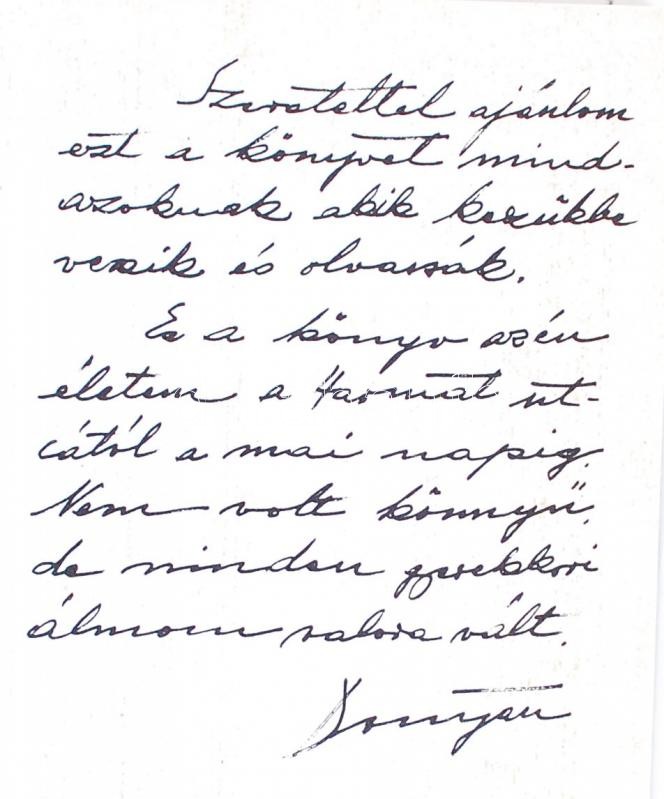 Szeretettel ajánlom
ezt a könyvet mind-
azoknak akik kezükbe
veszik és olvassák.
Ez a könyv azén
életem a Harmat ut-
cától a mai napig.
Nem volt könnyű,
de minden gyerekkori
álmom valora vált.